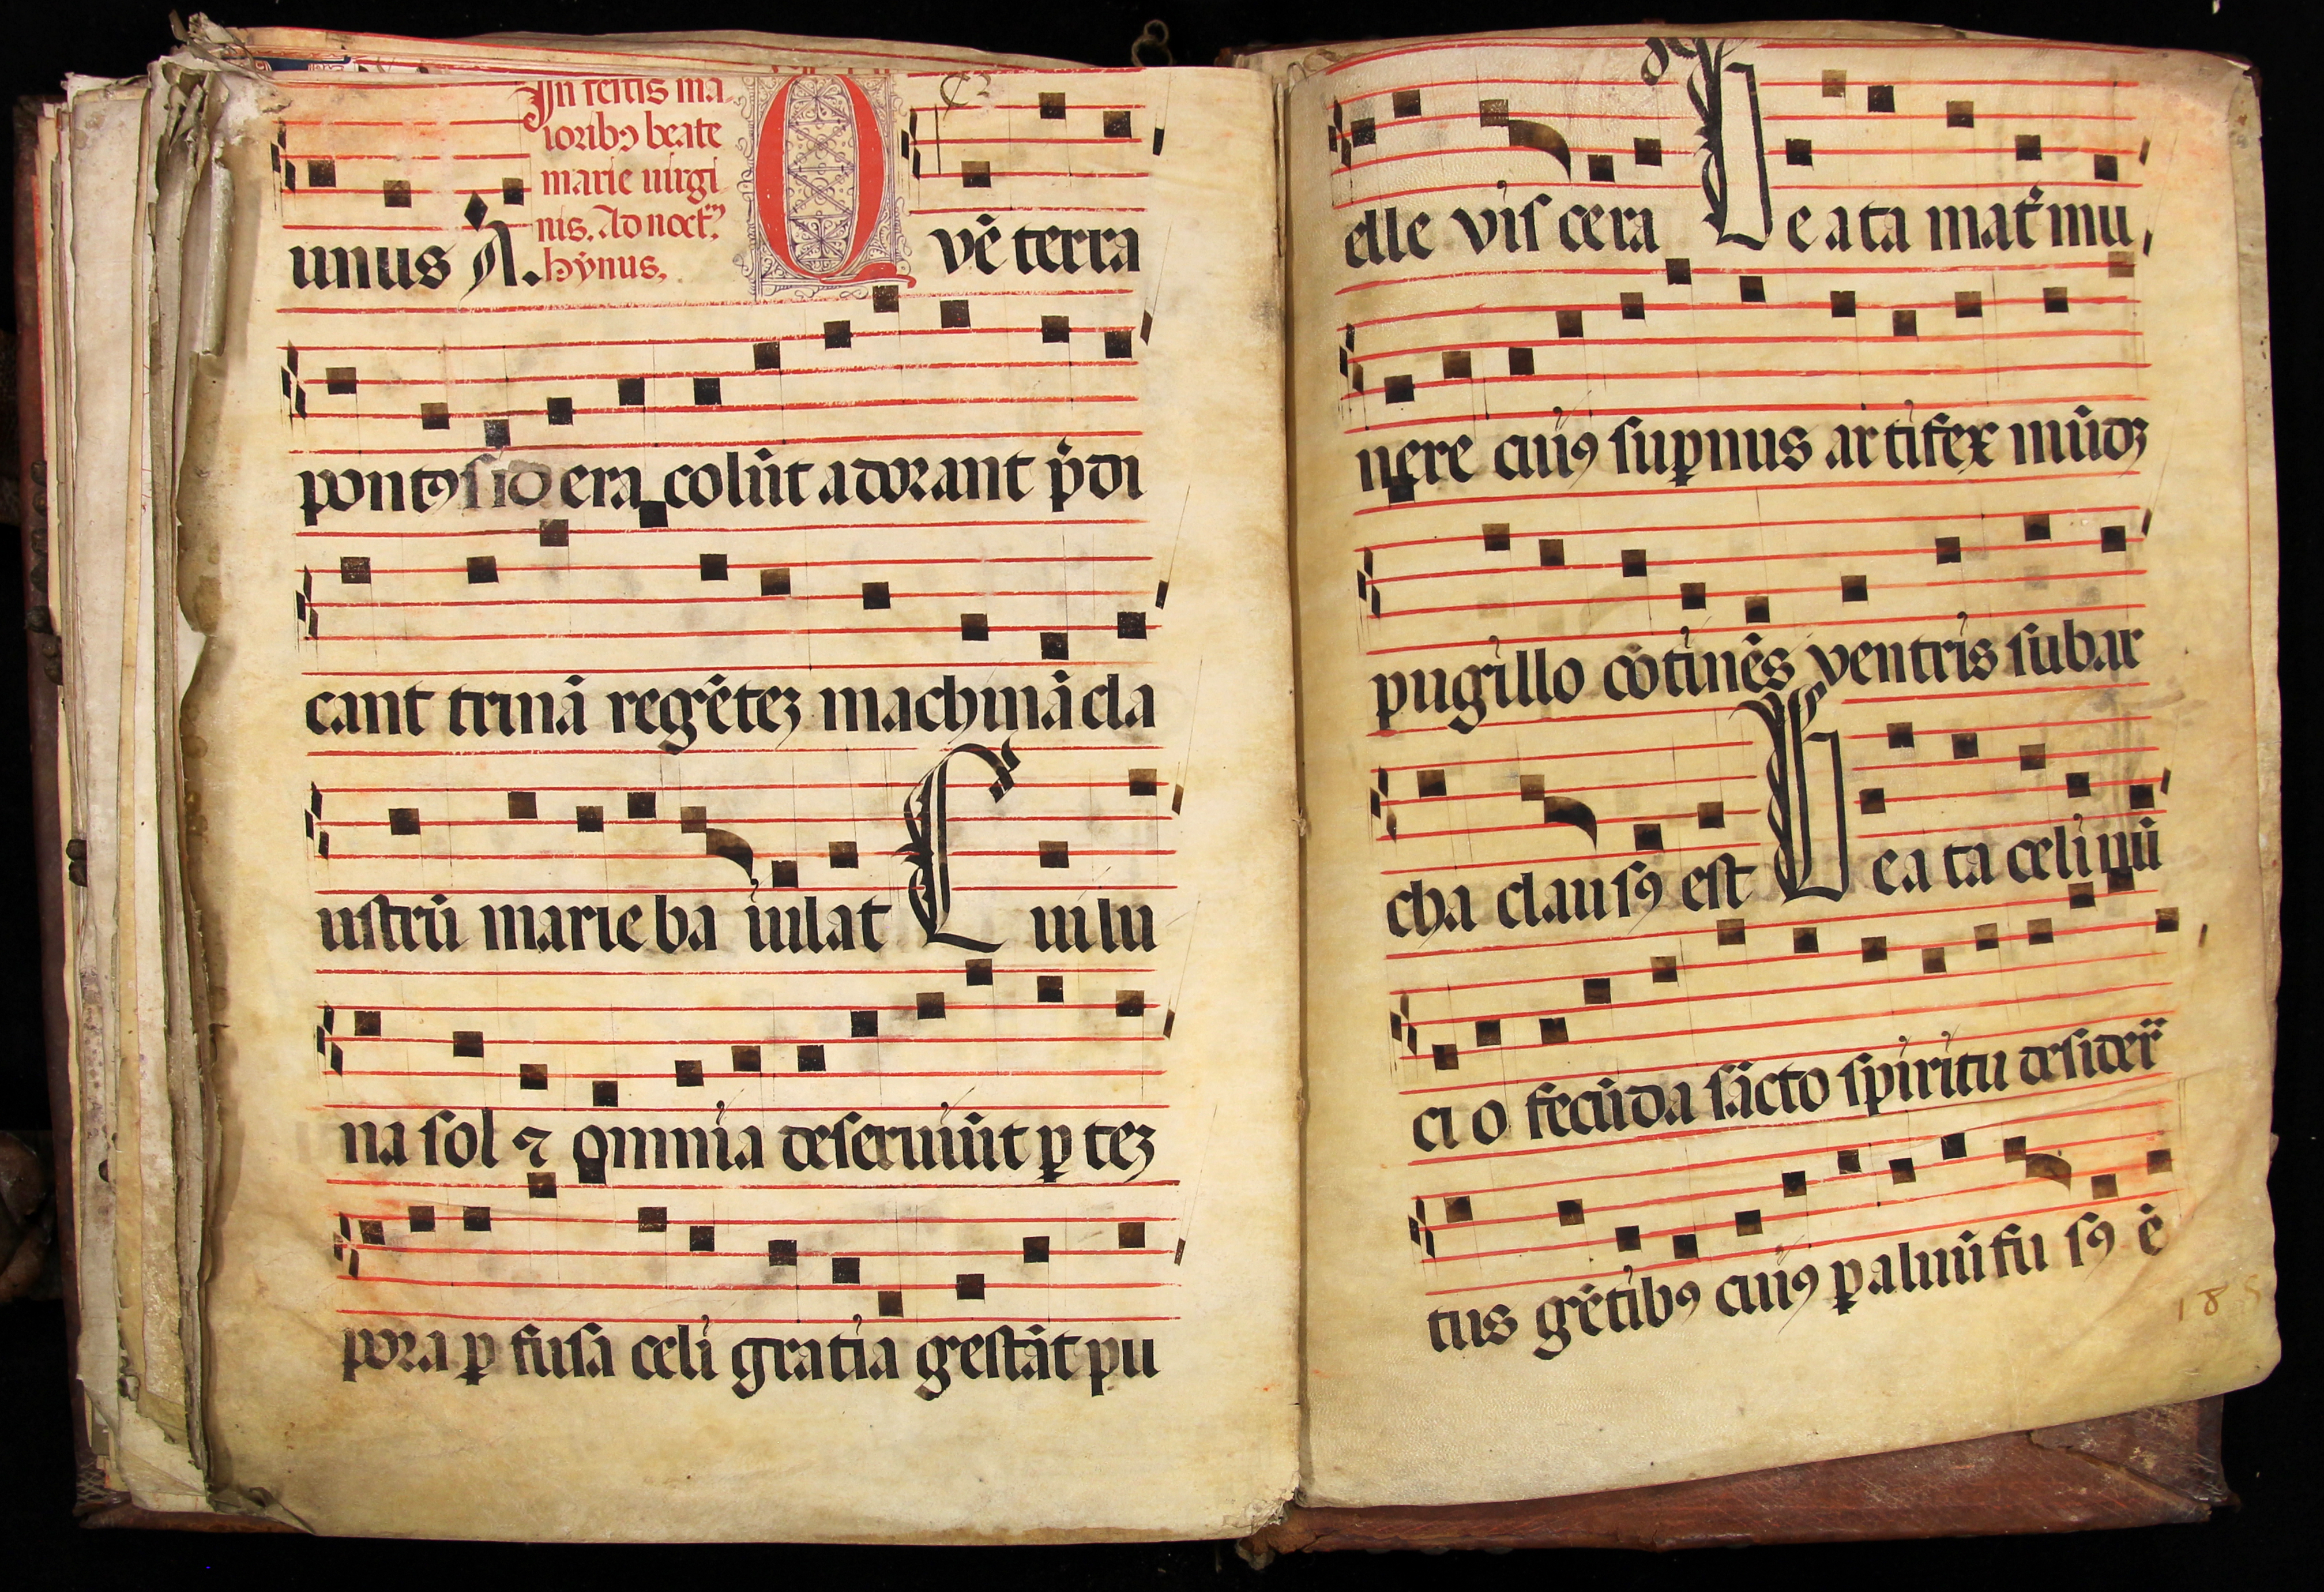 In festis ma
ioribꝯ beate
marie uirgi
nis. Ad noct̄
hȳnus.
unus A.
Q vē terra
pontꝯ sidera colūt adorant p̄di
cant trinā regēteꝫ machinā cla
ustrū marie ba iulat Cui lu
na sol ⁊ omnia deseruiūt ꝑ teꝫ
pora ꝑ fusa celi gratia gestāt pu
elle viscera Beata mat̄ mu
nere cuiꝯ suꝑnus artifex mūdꝫ
pugillo cōtinēs ventris sub ar
cha clausꝯ est Beata celi nū
cio fecūda sācto spiritu desider̄
tus gētibꝯ cuiꝯ ꝑ aluū fu sꝯ ē